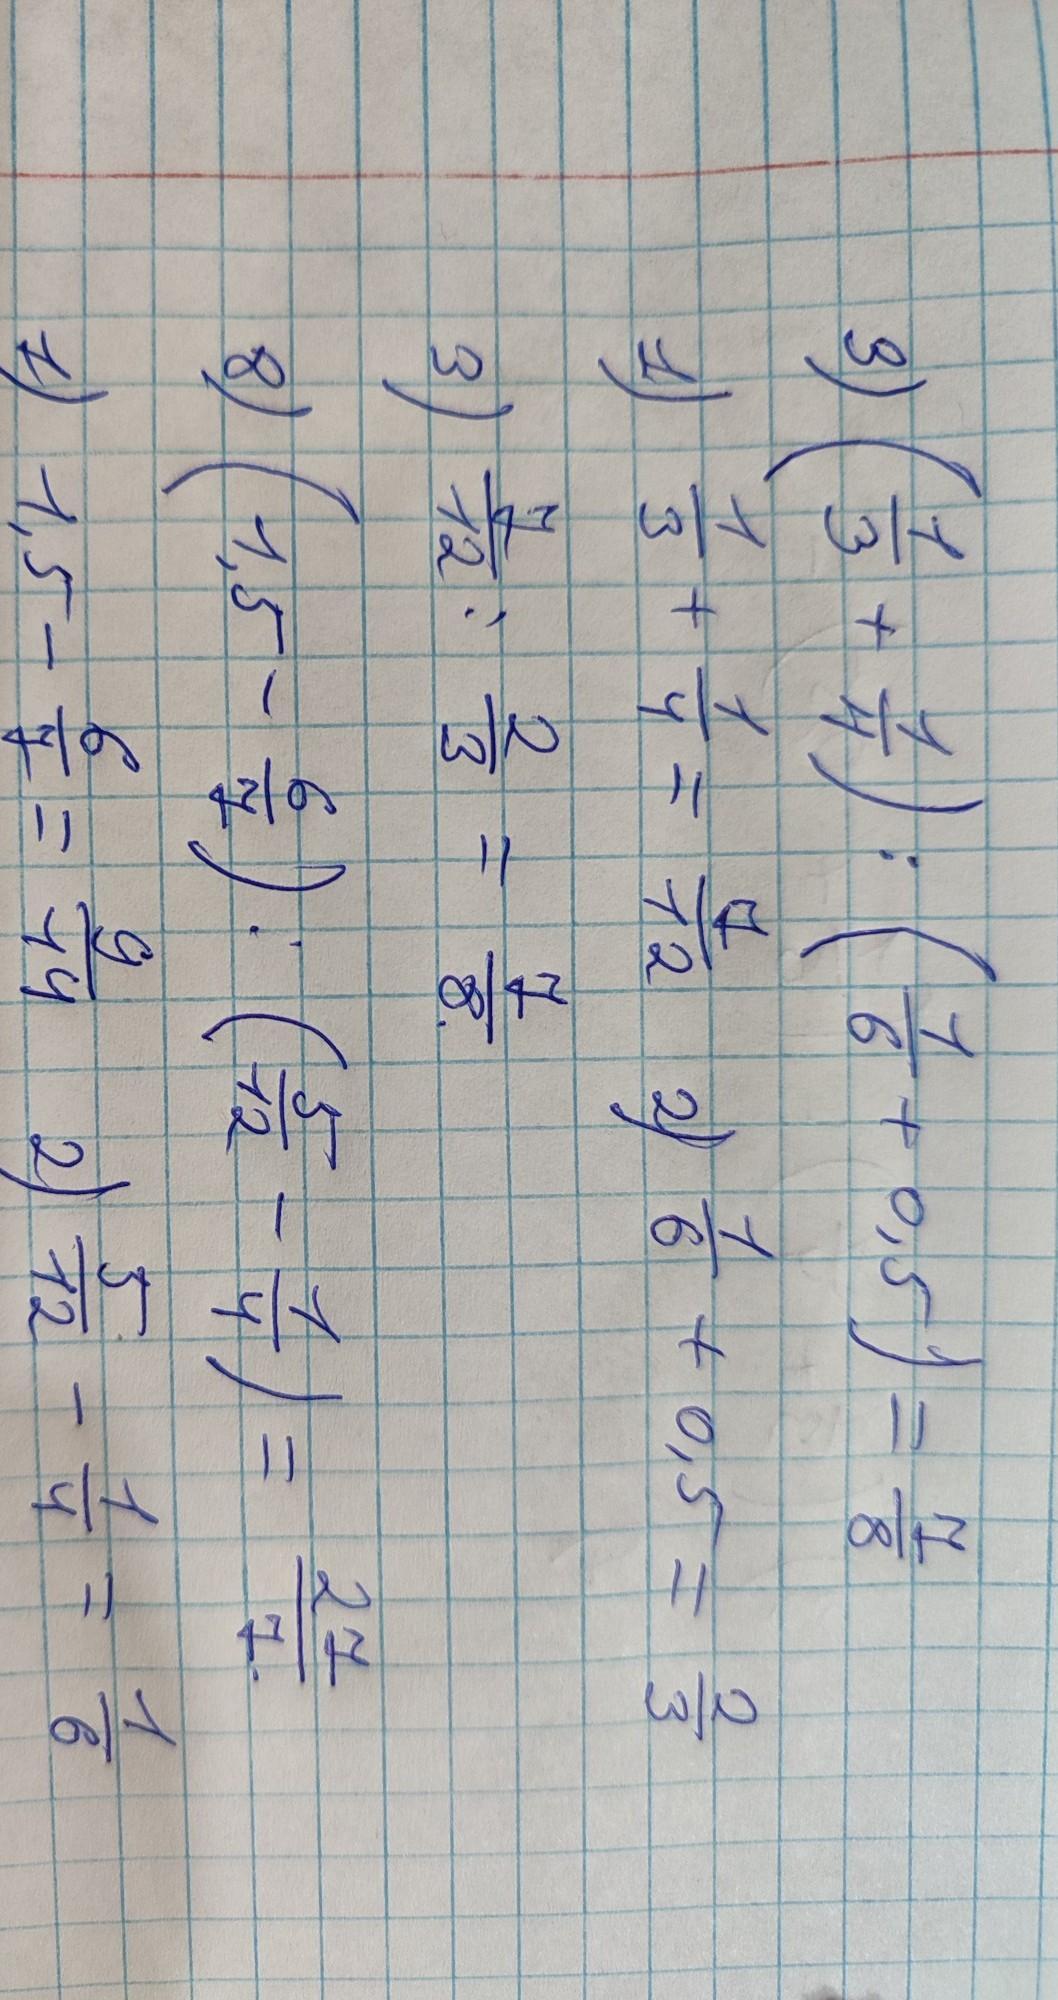 3) (1/3 + 1/4) : (1/6 + 0,5) = 7/8
1) 1/3 + 1/4 = 7/12 2) 1/6 + 0,5 = 2/3
3) 7/12 : 2/3 = 7/8.
8) (1,5 - 6/7) : (5/12 - 1/4) = 27/7.
1) 1,5 - 6/7 = 9/14 2) 5/12 - 1/4 = 1/6